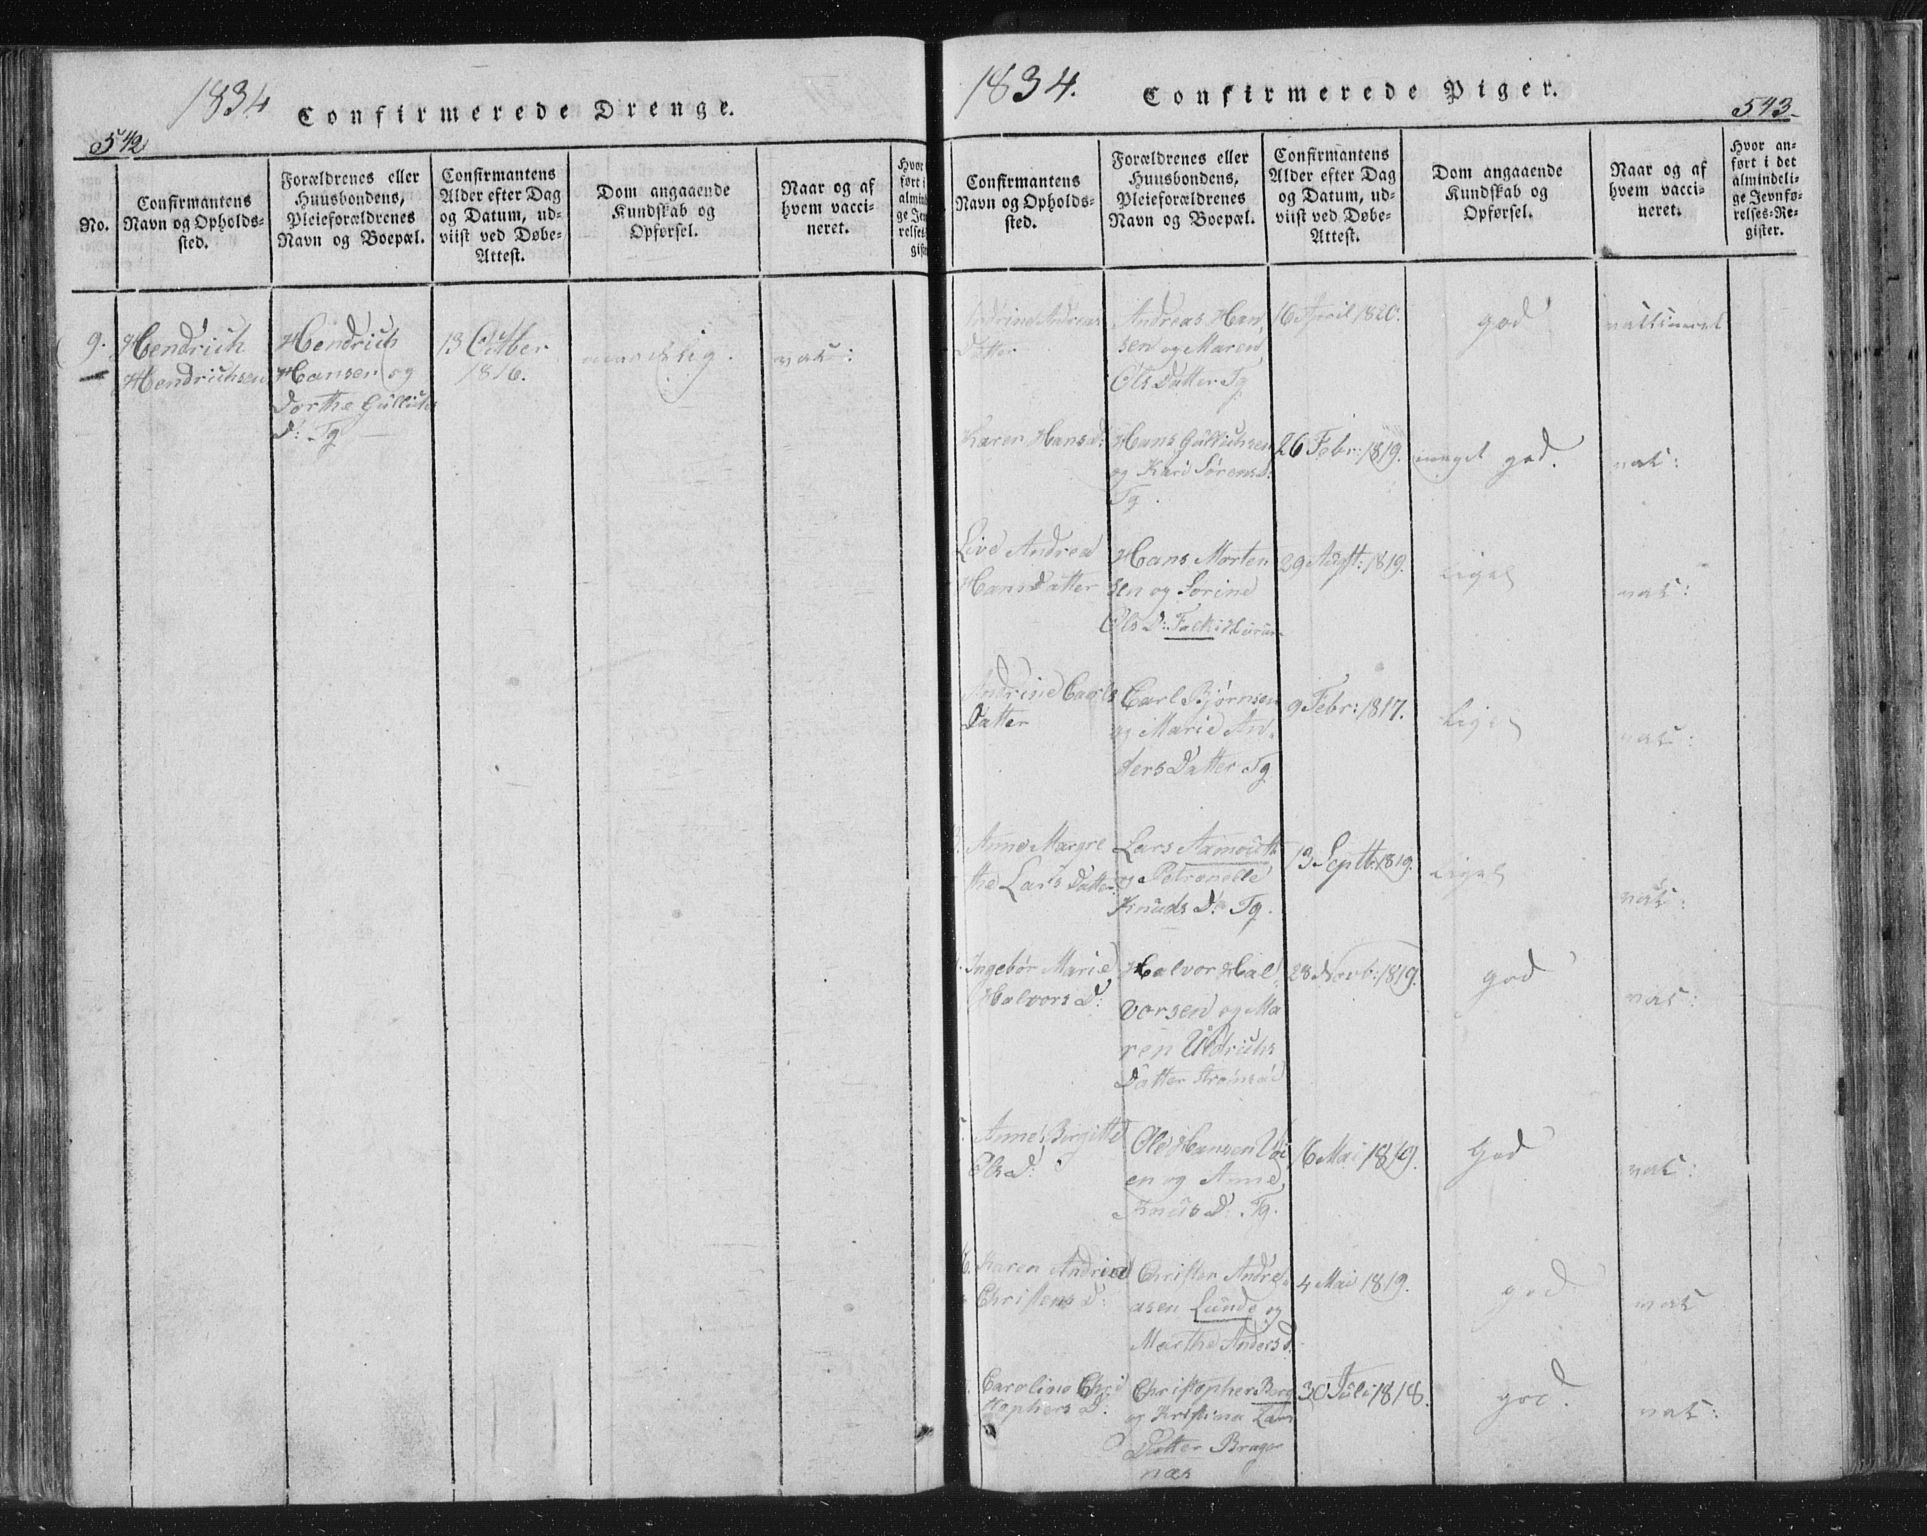 1834
Confirmerede Drenge.
542
No.
Confirmantens
Navn og Opholds-
sted.
Forældrenes eller
Huusbondens,
Pleieforældrenes
Navn og Boepæl.
Confirmantens
Alder efter Dag
og Datum, ud-
viist ved Døbe-
Attest.
Dom angaaende
Kundskab og
Opførsel.
Naar og af
hvem vacci-
neret.
9.
Hendrich
Hendrichsen
Hendrich
Hansen og
Dorthe
D: Tg
13 Octber
1816.
vac:
1834.
Confirmerede Piger.
543.
Confirmantens
Navn og Opholds-
sted.
Forældrenes eller
Huusbondens,
Pleieforældrenes
Navn og Boepæl.
Confirmantens
Alder efter Dag
og Datum, ud-
viist ved Døbe-
Attest.
Dom angaaende
Kundskab og
Opførsel.
Naar og af
hvem vacci-
neret.
Hvor an-
ført i det
almindeli-
ge Jevnfø-
relses-Re-
gister.
Andreas
Datter
Andreas Han
sen og Maren
Ols Datter Tg
16 April 1820.
god
vaccineret
Karen Hansd:
Hans Gullichsen
og Kari Sørensd:
Tg.
26 Febr: 1819.
meget god.
vac:
Live Andrea
Hansdatter
Hans Morten
sen og Sorine
Ols D:
29 Augst: 1819.
liget
vac:
Andrine Carls
Datter
Carl Bjørnsen
og Marie An-
ders Datter Tg
9 Febr: 1817.
liget
vac:
Anne Margre
the Lars Datter
Lars
og Petronelle
Knuds D: Tg.
13 Septb: 1819.
liget
vac:
Ingebor Marie
Halvors D:
Halvor Hal
vorsen og Ma
ren Uldrichs
Datter Strømsøe
28 Novb: 1819.
god
vac:
Anne Birgitte
Ols D:
Ole Hansen
en og Anne
Knuds D: Tg.
16 Mai 1819.
God
vac:
Karen Andrine
Christens D:
Christen Andre
asen Lunde og
Marthe Anders d.
4 Mai 1819.
god
vac
Caroline Chri
stophers D:
Christopher Berg
og Kristina Lars
Datter Brager
næs
30 Juli 1818.
god.
vac: